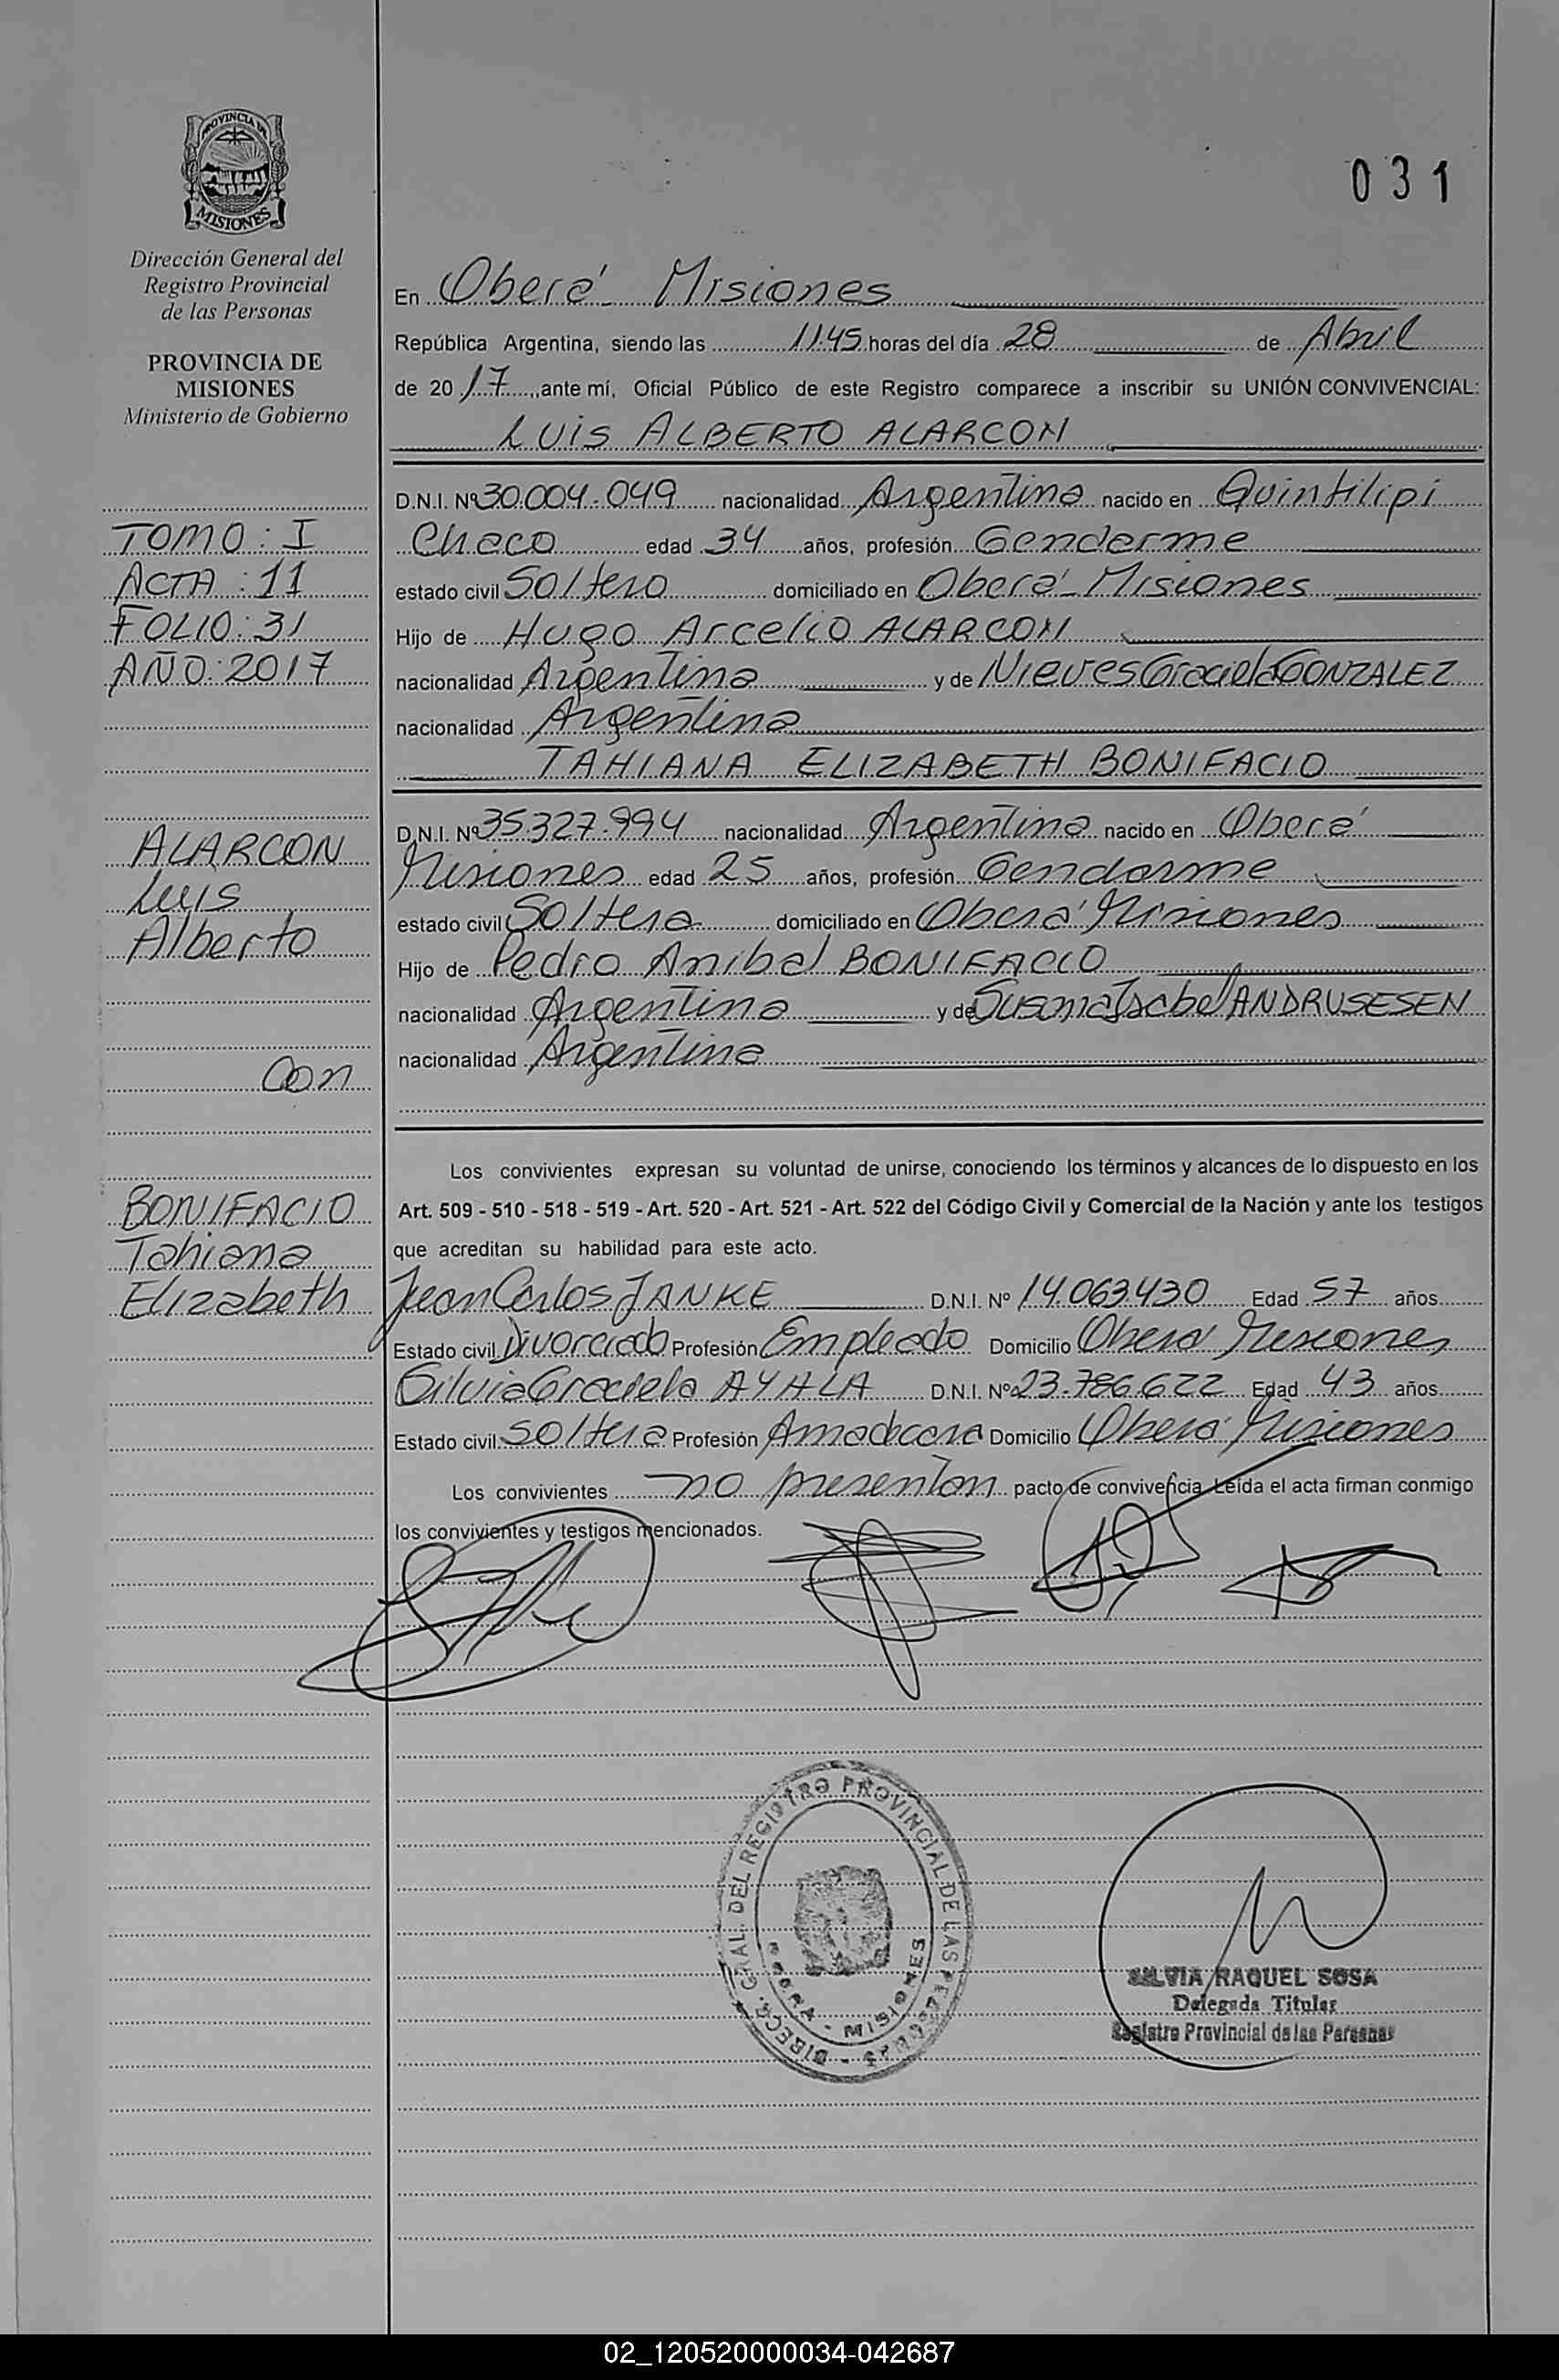 PROVINCIA DE
MISIONES
Dirección General del
Registro Provincial
de las Personas
PROVINCIA DE
MISIONES
Ministerio de Gobierno
TOMO: I
ACTA: 11
FOLIO: 31
AÑO: 2017
ALARCON
Luis
Alberto
Con
BONIFACIO
Tahiana
Elizabeth
031
En Oberá - Misiones
República Argentina, siendo las 11.45 horas del día 28 de Abril
de 20 17, ante mí, Oficial Público de este Registro comparece a inscribir su UNIÓN CONVIVENCIAL:
LUIS ALBERTO ALARCON
D.N.I. Nº 30.004.049 nacionalidad Argentina nacido en Quintilipi
Chaco edad 34 años, profesión Genderme
estado civil Soltero domiciliado en Oberá - Misiones
Hijo de Hugo Arcelio ALARCON
nacionalidad Argentina y de Nieves Graciela GONZALEZ
nacionalidad Argentina
TAHIANA ELIZABETH BONIFACIO
D.N.I. Nº 35.327.994 nacionalidad Argentina nacido en Oberá
Misiones edad 25 años, profesión Gendarme
estado civil Soltera domiciliado en Oberá Misiones
Hijo de Pedro Anibal BONIFACIO
nacionalidad Argentina y de Susana Isabel ANDRUSESEN
nacionalidad Argentina
Los convivientes expresan su voluntad de unirse, conociendo los términos y alcances de lo dispuesto en los
Art. 509 - 510 - 518 - 519 - Art. 520 - Art. 521 - Art. 522 del Código Civil y Comercial de la Nación y ante los testigos
que acreditan su habilidad para este acto.
Jean Carlos JANKE D.N.I. Nº 14.063.430 Edad 57 años
Estado civil Divorciado Profesión Empleado Domicilio Oberá Misiones
Silvia Graciela AYALA D.N.I. Nº 23.786.622 Edad 43 años
Estado civil Soltera Profesión Ama de casa Domicilio Oberá Misiones
Los convivientes no presentan pacto de convivencia. Leida el acta firman conmigo
los convivientes y testigos mencionados.
DIRECC. GRAL. DEL REGISTRO PROVINCIAL DE LAS PERSONAS
OBERA - MISIONES
SILVIA RAQUEL SOSA
Delegada Titular
Registro Provincial de las Personas
02_120520000034-042687